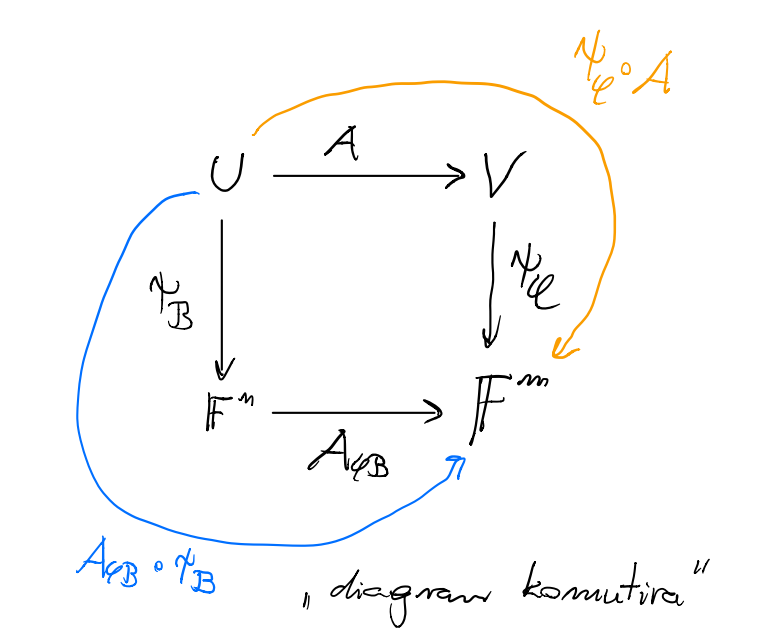 ψ_𝒞 ∘ A
A
U V
ψ_B
ψ_𝒞
𝔽ⁿ 𝔽ᵐ
A_𝒞B
A_𝒞B ∘ ψ_B
„diagram komutira”